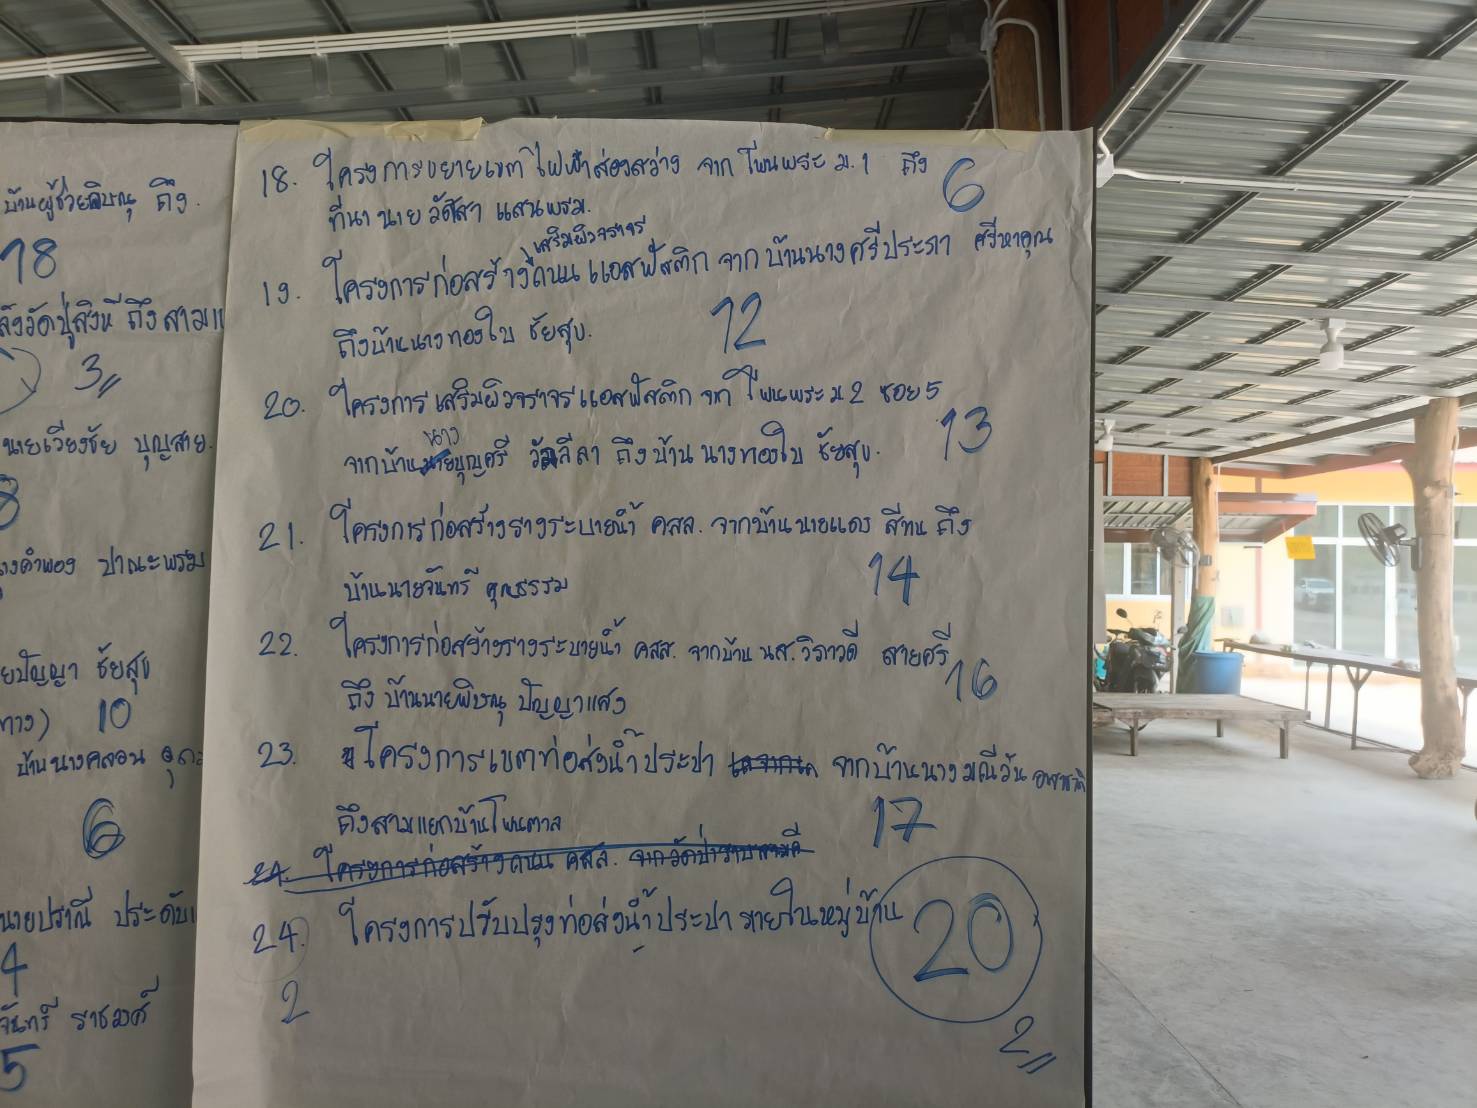 บ้านผู้ช่วยพิษณุ ถึง
18
ถึงสาม
3
นายเวียงชัย บุญสาย
8
ปาณะพรม
ปัญญา ชัยสุข
ทาง) 10
บ้านนางคลอน
6
นายปราณี
4
จันทรี ราชวงศ์
5
18. โครงการขยายเขตไฟฟ้าส่องสว่าง จากโพนพระ ม.1 ถึง
ที่นา นาย แสนพรม. 6
เสริมผิวจราจร
19. โครงการก่อสร้างถนน แอสฟัสติก จากบ้านนางศรีประภา ศรีหาคุณ
ถึงบ้านนางทองใบ ชัยสุข. 12
20. โครงการเสริมผิวจราจรแอสฟัสติก โพนพระ ม 2 ซอย 5
นาง
จากบ้าน บุญศรี ถึงบ้าน นางทองใบ ชัยสุข. 13
21. โครงการก่อสร้างรางระบายน้ำ คสล. จากบ้านนายแดง สีทน ถึง
บ้านนายจันทรี คุณธรรม 14
22. โครงการก่อสร้างรางระบายน้ำ คสล. จากบ้าน นส.วิภาวดี สายศรี
ถึง บ้านนายพิษณุ ปัญญาแสง 16
23. โครงการเขตท่อส่งน้ำประปา จากบ้านนางมณีวัน
ถึงสามแยกบ้านโพนตาล 17
24. โครงการก่อสร้างถนน คสล. จากวัดป่า
24. โครงการปรับปรุงท่อส่งน้ำประปา ภายในหมู่บ้าน 20
2
2